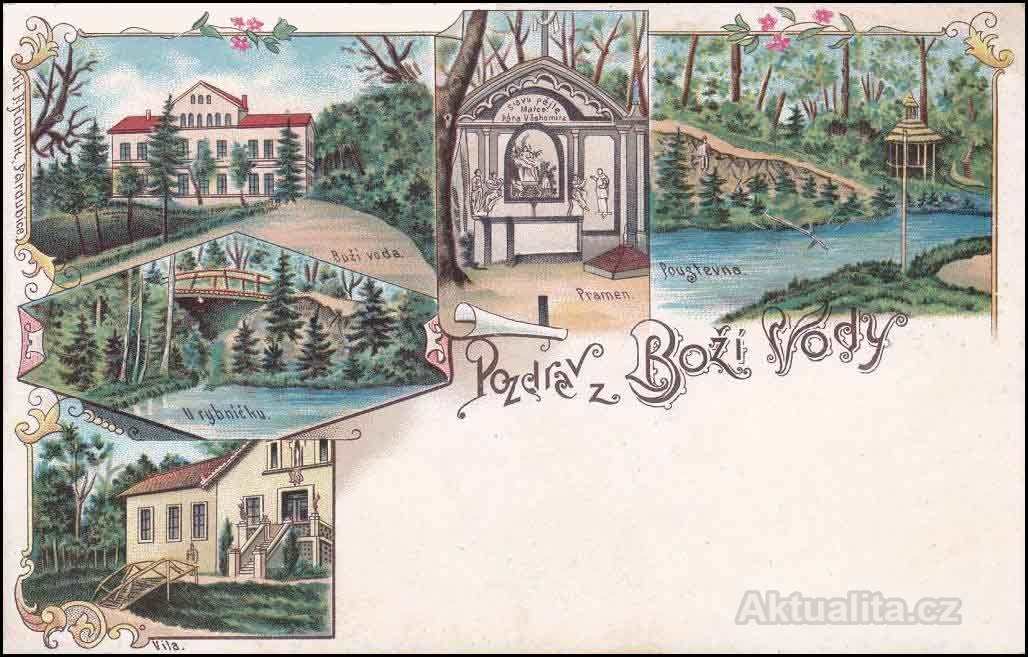 Boží voda.
Slávu pějte
Matce
Pána Všehomíra
Pramen.
Poustevna.
U rybníčku.
Pozdrav z Boží Vody
Vila.
Aktualita.cz